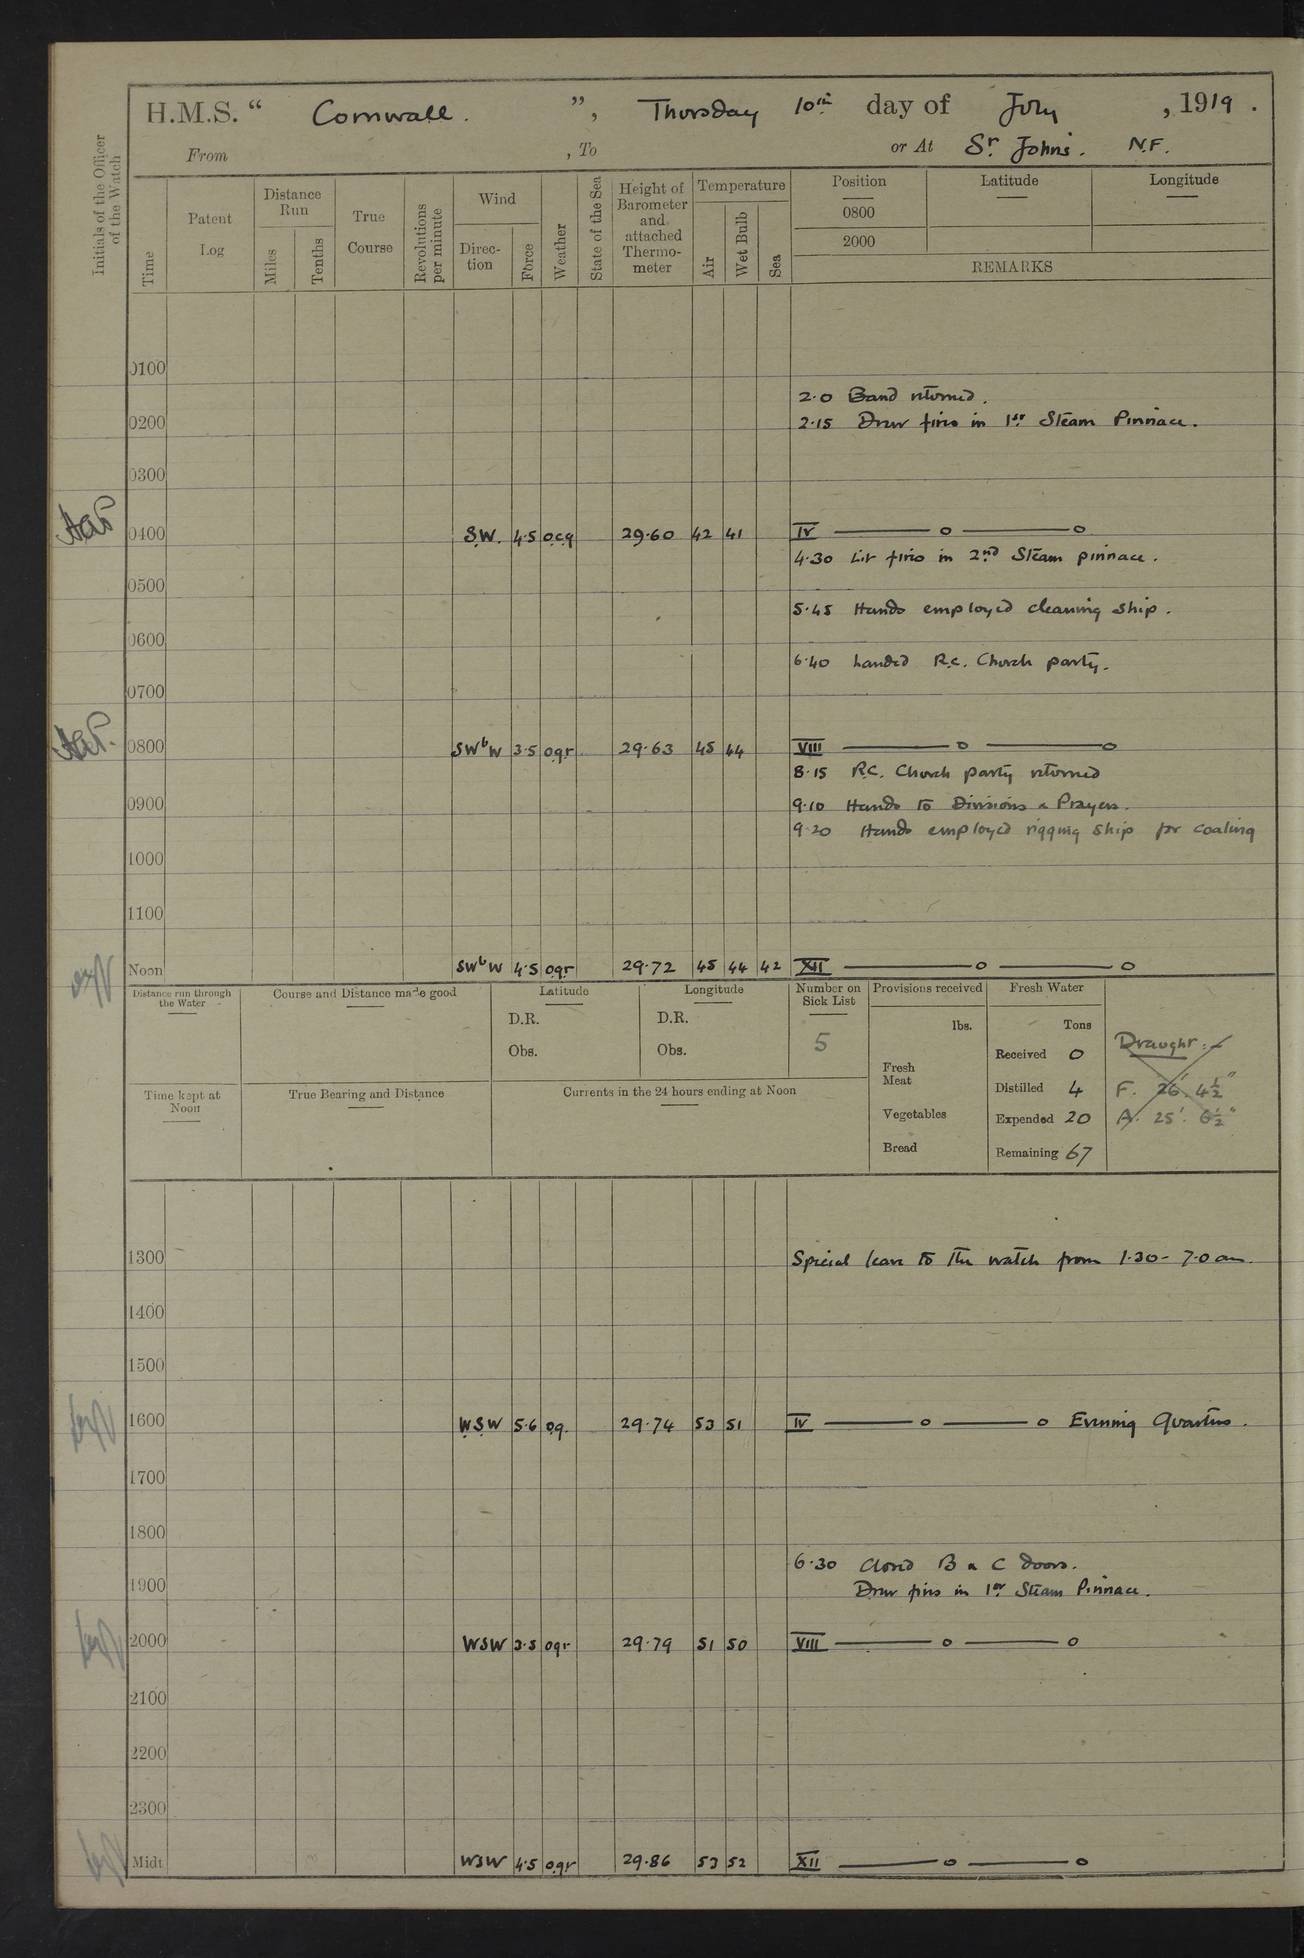 H.M.S. “ Cornwall. ”, Thursday 10th day of July , 1919 .
From , To or At St. Johns. N.F.
Initials of the Officer of the Watch
Time
Patent Log
Distance Run
Miles
Tenths
True Course
Revolutions per minute
Wind
Direction
Force
Weather
State of the Sea
Height of Barometer and attached Thermometer
Temperature
Air
Wet Bulb
Sea
Position Latitude Longitude
0800
2000
REMARKS
0100
2.0 Band returned.
0200 2.15 Drew fires in 1st Steam Pinnace.
0300
0400 S.W. 4.5 o.c.q 29.60 42 41 IV
4.30 Lit fires in 2nd Steam pinnace.
0500
5.45 Hands employed cleaning ship.
0600
6.40 Landed R.C. Church party.
0700
0800 SWbW 3.5 o.q.r 29.63 45 44 VIII
8.15 R.C. Church party returned
0900 9.10 Hands to Divisions & Prayers.
9.20 Hands employed rigging ship for coaling
1000
1100
Noon SWbW 4.5 o.q.r 29.72 45 44 42 XII
Distance run through the Water
Course and Distance made good
Latitude
D.R.
Obs.
Longitude
D.R.
Obs.
Number on Sick List
5
Provisions received
lbs.
Fresh Meat
Vegetables
Bread
Fresh Water
Tons
Received 0
Distilled 4
Expended 20
Remaining 67
Draught:-
F. 26' 4½"
A. 25' 6½"
Time kept at Noon
True Bearing and Distance
Currents in the 24 hours ending at Noon
1300 Special leave to the watch from 1.30 - 7.0 am.
1400
1500
1600 WSW 5.6 o.q. 29.74 53 51 IV Evening Quarters.
1700
1800
6.30 Closed B & C doors.
1900 Drew fires in 1st Steam Pinnace.
2000 WSW 3.5 oqr 29.79 51 50 VIII
2100
2200
2300
Midt WSW 4.5 o.q.r 29.86 53 52 XII